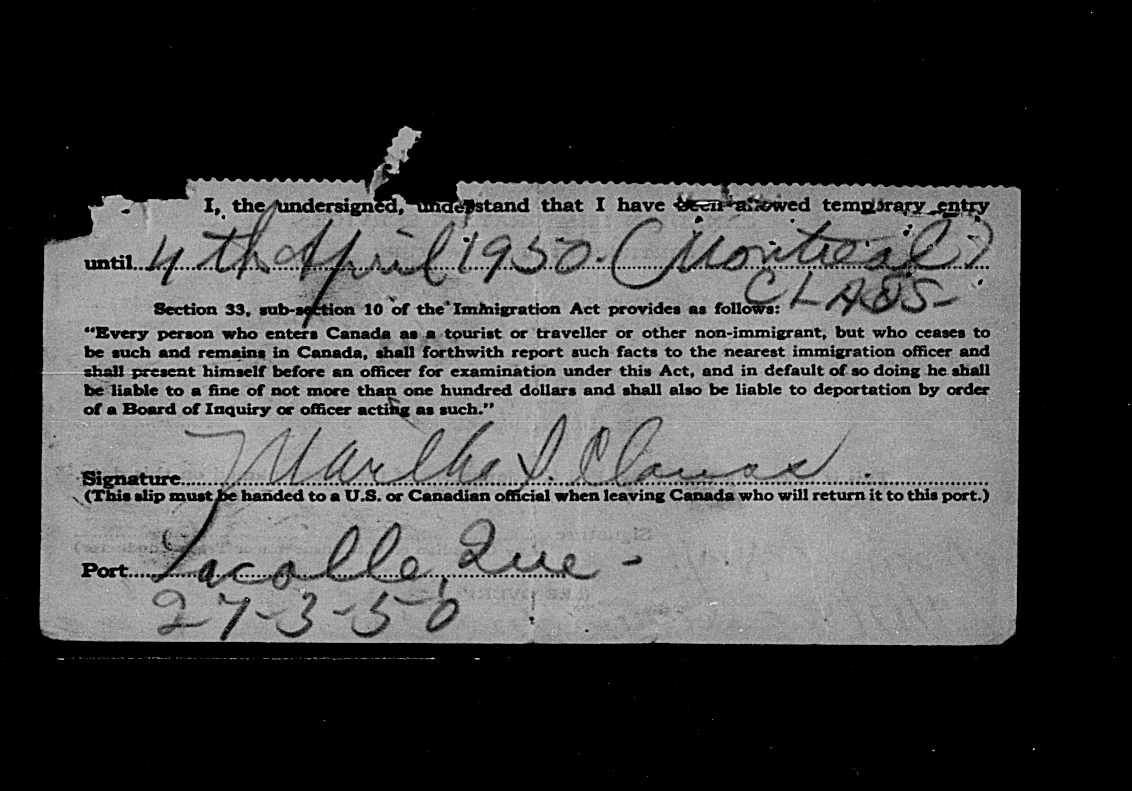 I, the undersigned, understand that I have been allowed temporary entry
until 4th April 1950. (Montreal)
CLASS-
Section 33, sub-section 10 of the Immigration Act provides as follows:
"Every person who enters Canada as a tourist or traveller or other non-immigrant, but who ceases to
be such and remains in Canada, shall forthwith report such facts to the nearest immigration officer and
shall present himself before an officer for examination under this Act, and in default of so doing he shall
be liable to a fine of not more than one hundred dollars and shall also be liable to deportation by order
of a Board of Inquiry or officer acting as such."
Signature Martha
(This slip must be handed to a U.S. or Canadian official when leaving Canada who will return it to this port.)
Port Lacolle, Que -
27-3-50